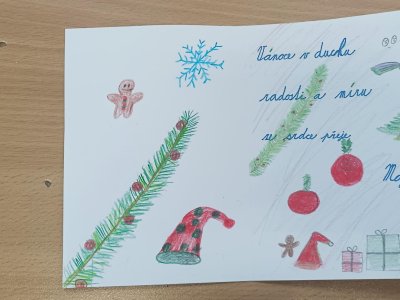 Vánoce v duchu
radosti a míru
ze srdce přeje